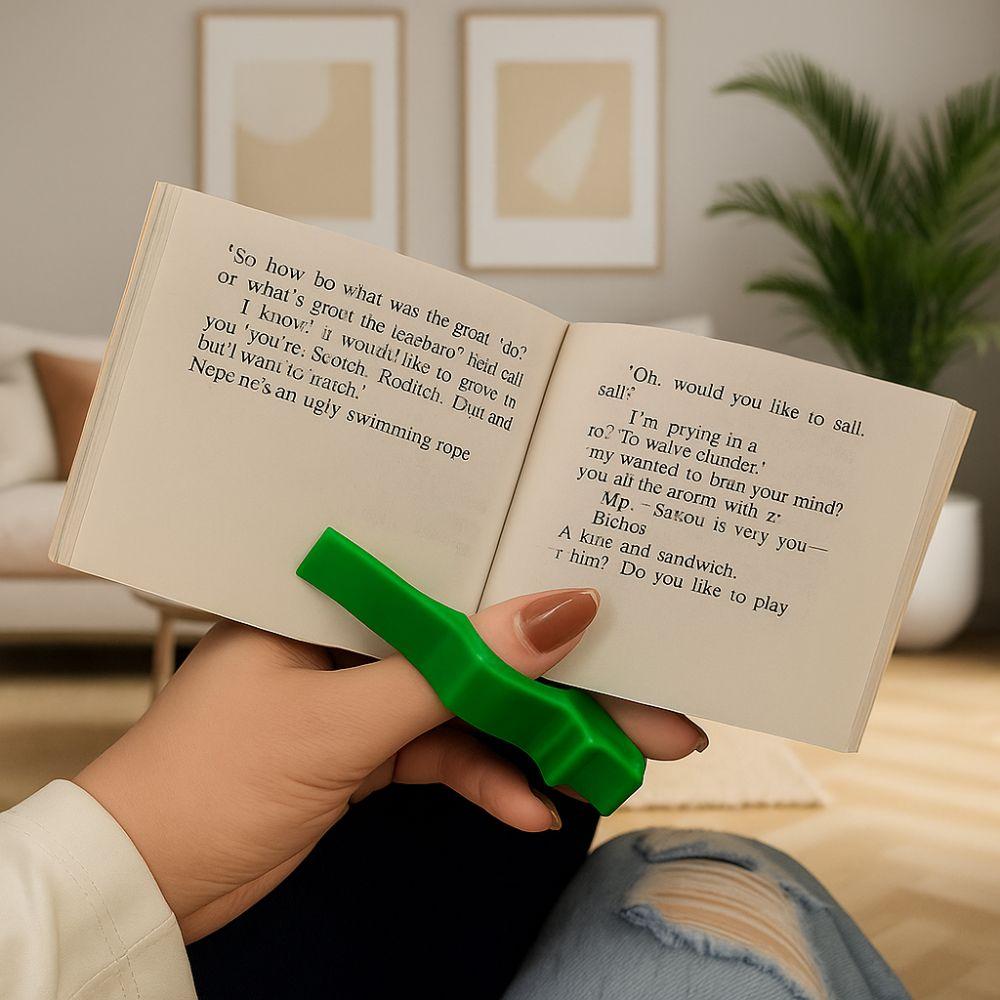 'So how bo what was the groat 'do?
or what's grout the teaebaro? heid call
I know! it would! like to grove in
you 'you're: Scotch. Roditch. Duit and
but'l want to match.'
Nepe ne's an ugly swimming rope
'Oh. would you like to sall.
sall?
I'm prying in a
ro? 'To walve clunder.'
my wanted to bran your mind?
you all the arorm with z:
Mp. – Sakou is very you—
Bichos
A kine and sandwich.
r him? Do you like to play